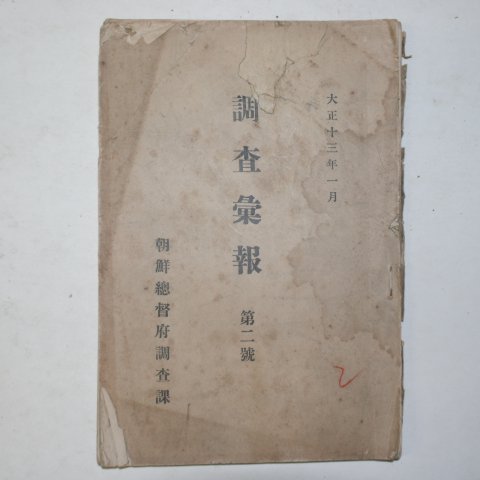 大正十三年一月
調査彙報
第二號
朝鮮總督府調査課
2